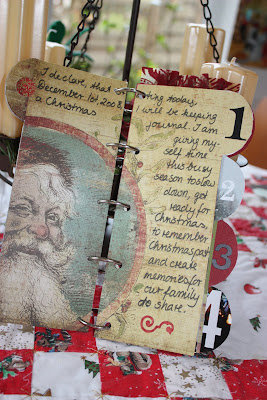 I declare, that starting today,
December 1st 2008 I will be keeping
a Christmas journal. I am
giving my
self time
this busy
season to slow
down, get
ready for
Christmas,
to remember
Christmas past
and create
memories for
our family
to share.
1
2
3
4